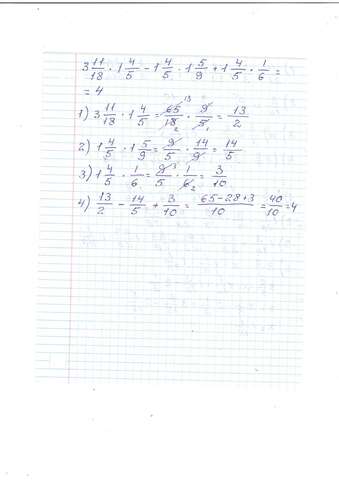 3 11/18 · 1 4/5 − 1 4/5 · 1 5/9 + 1 4/5 · 1/6 =
= 4
1) 3 11/18 · 1 4/5 = 65/18 · 9/5 = 13/2
2) 1 4/5 · 1 5/9 = 9/5 · 14/9 = 14/5
3) 1 4/5 · 1/6 = 9/5 · 1/6 = 3/10
4) 13/2 − 14/5 + 3/10 = 65−28+3/10 = 40/10 = 4